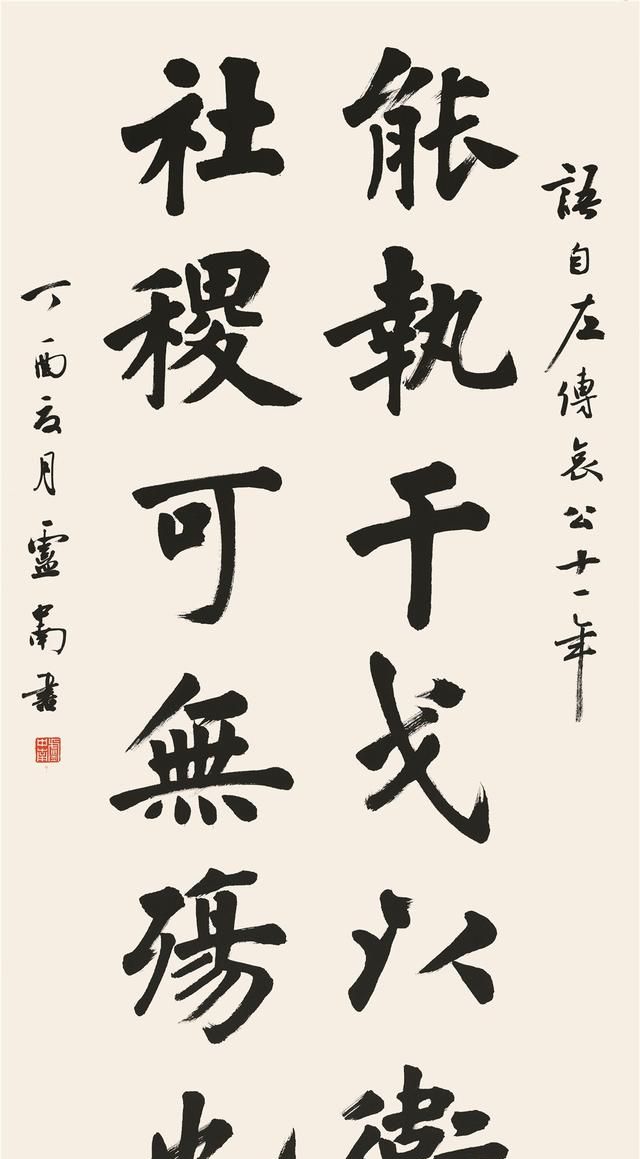 語自左傳哀公十一年
能執干戈以衛
社稷可無殤也
丁酉夏月盧中南書